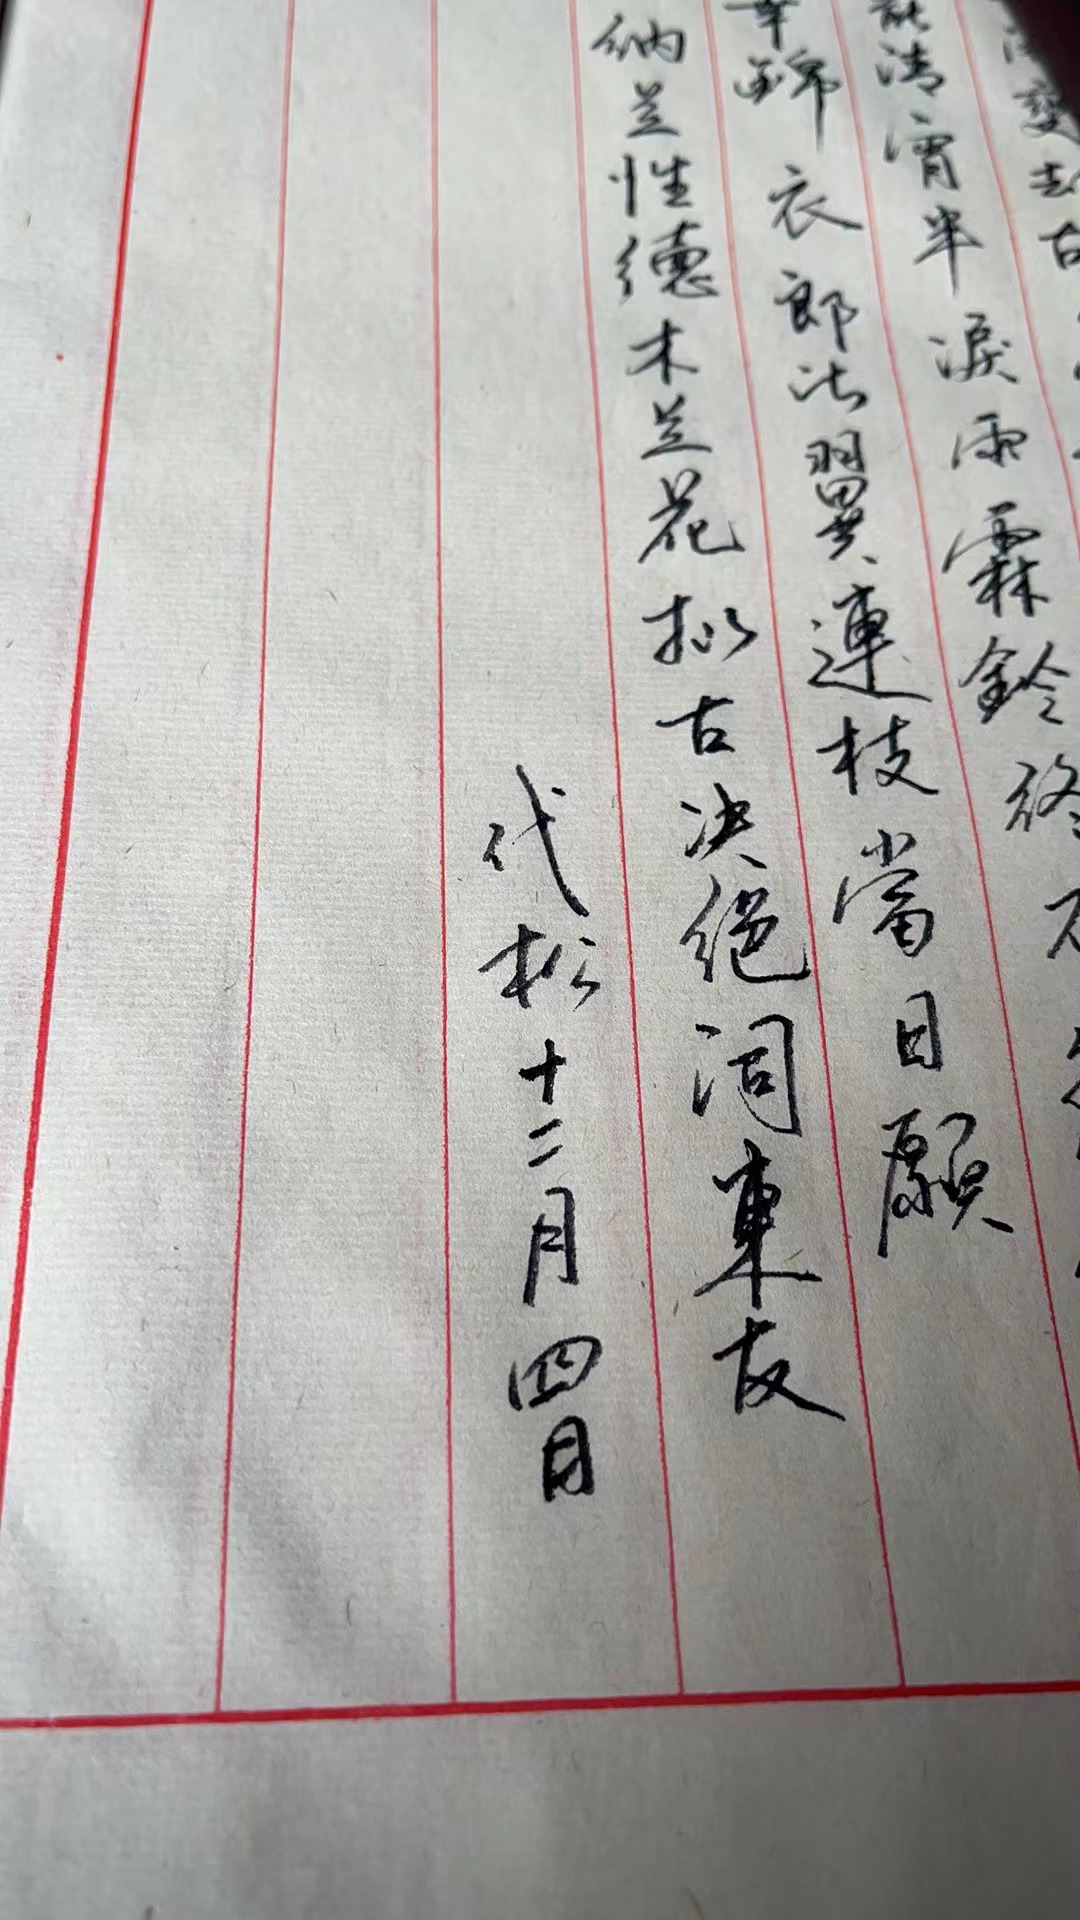 變却古
清宵半淚雨霖鈴終不
錦衣郎比翼連枝當日願
纳兰性德木兰花拟古决绝词柬友
代松十二月四日